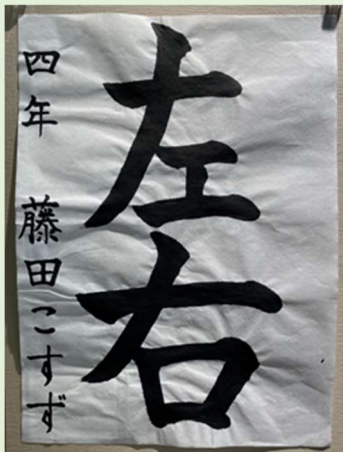 左右
四年 藤田こすず